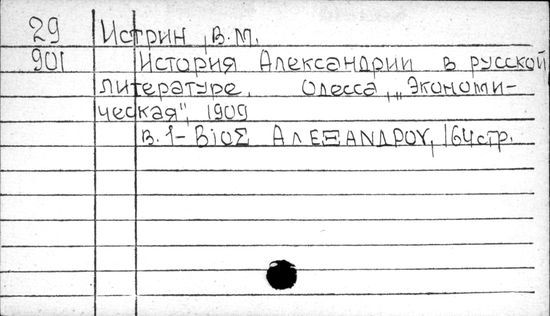 29 Истрин, В.М.
901 История Александрии в русской
литературе. Одесса, „Экономи-
ческая", 1909
В. 1- Βίος Αλεξάνδρου, 164 стр.